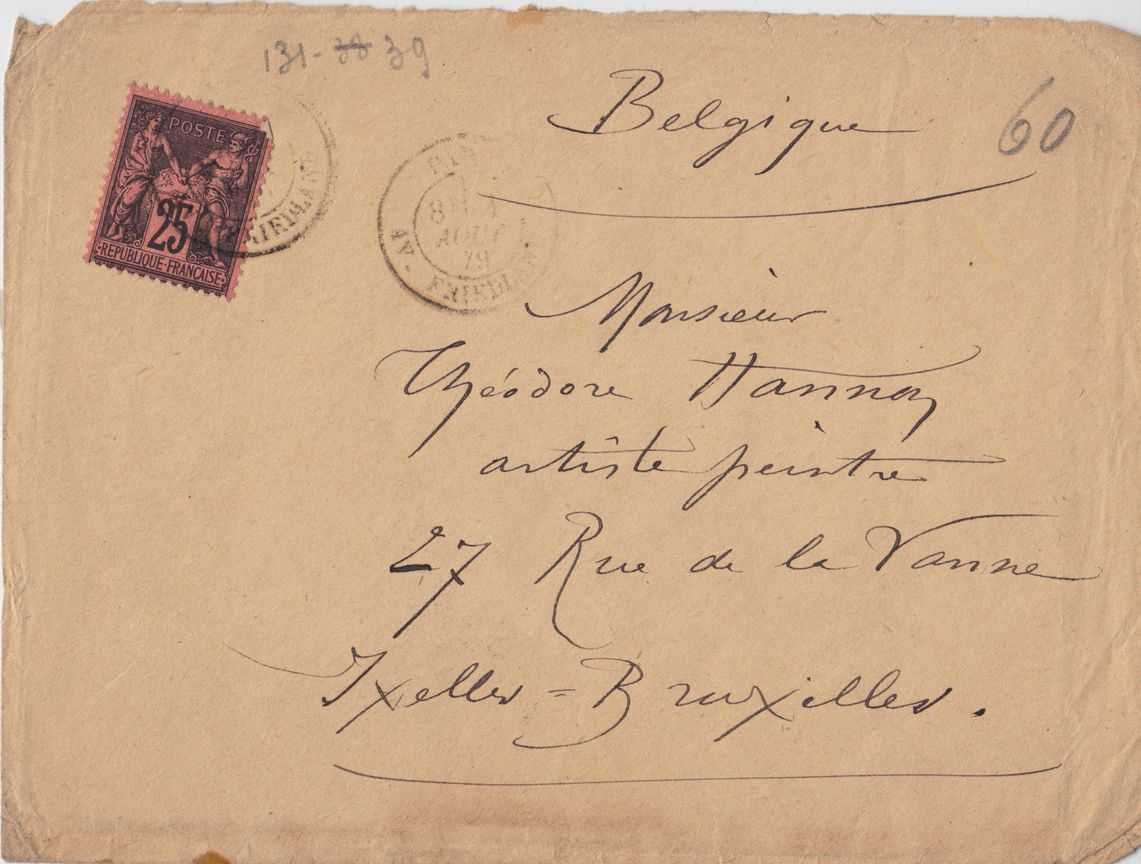 131-38 39
Belgique
60
POSTE
25
REPUBLIQUE·FRANÇAISE
AV. FRIEDLAND
AOUT
79
AV. FRIEDLAND
Monsieur
Théodore Hannon
artiste peintre
27 Rue de la Vanne
Ixelles=Bruxelles.